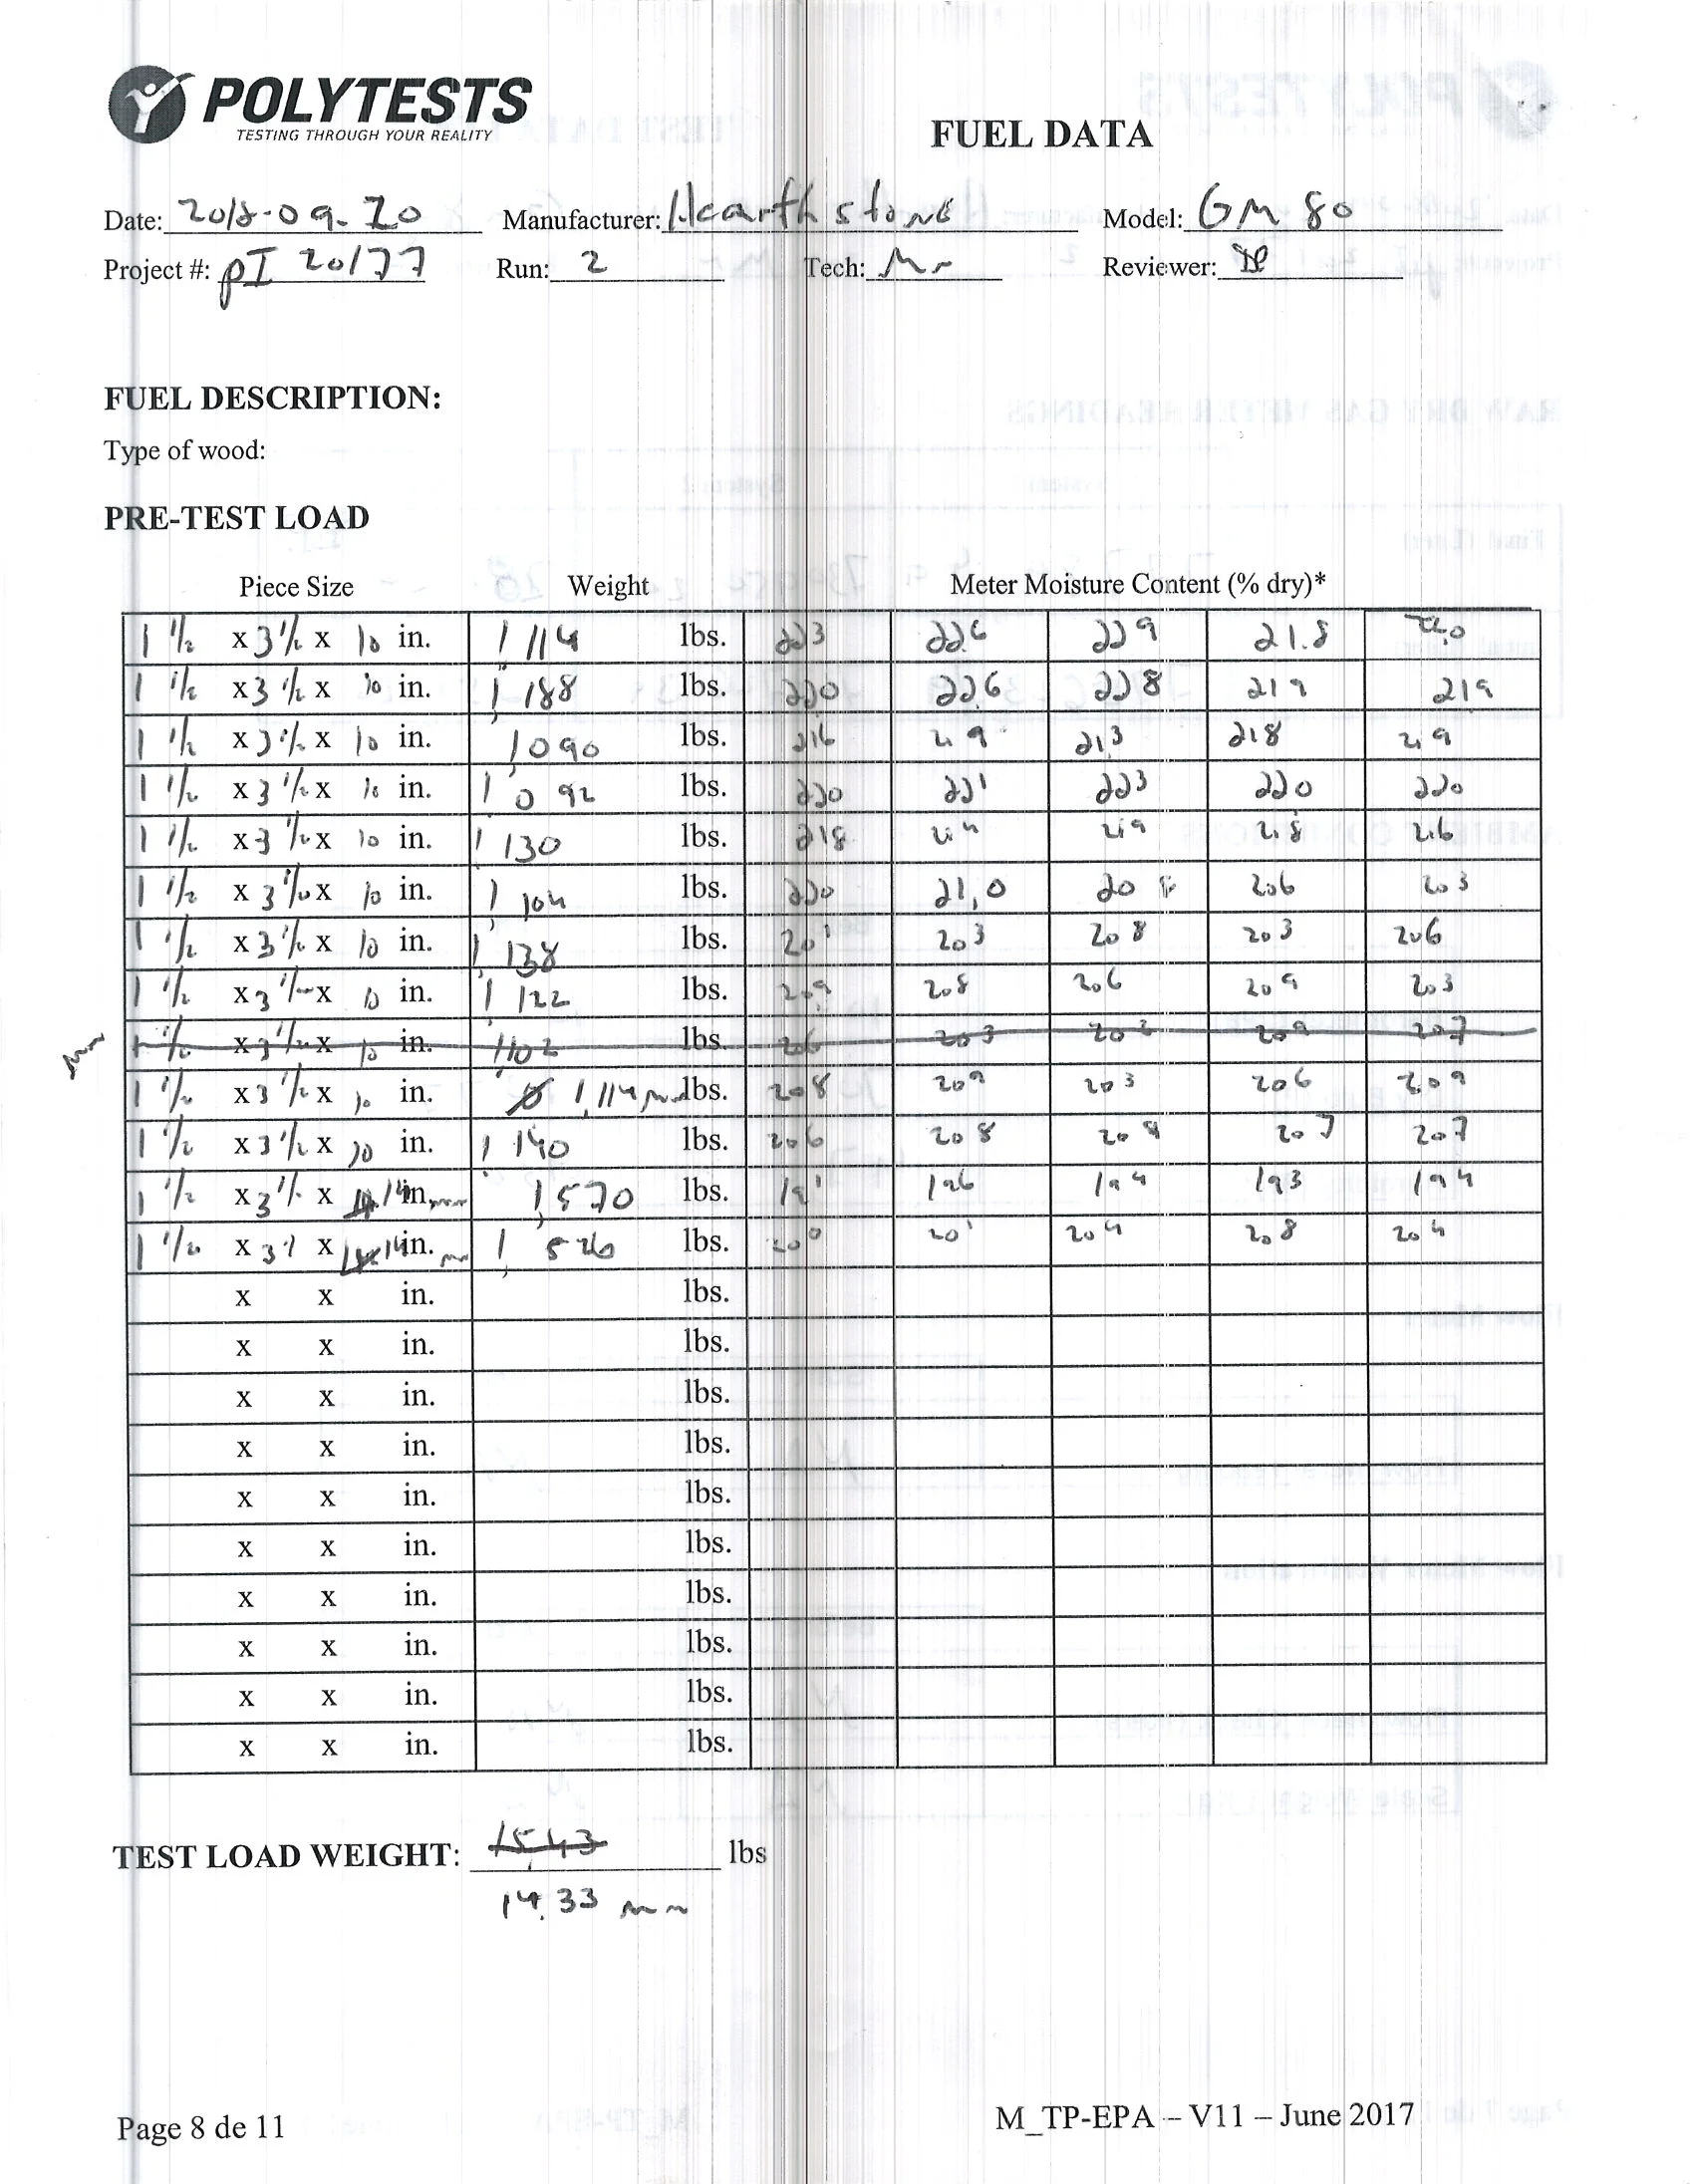 POLYTESTS
TESTING THROUGH YOUR REALITY
FUEL DATA
Date: 2018-09-20 Manufacturer: Hearthstone Model: GM 80
Project #: pI 20177 Run: 2 Tech: Reviewer:
FUEL DESCRIPTION:
Type of wood:
PRE-TEST LOAD
Piece Size Weight Meter Moisture Content (% dry)*
1 1/2 x 3 1/2 x 10 in. 1,114 lbs. 223 22.6 229 21.8 22.0
1 1/2 x 3 1/2 x 10 in. 1,188 lbs. 220 22.6 228 219 219
1 1/2 x 3 1/2 x 10 in. 1,090 lbs. 216 219 213 218 219
1 1/2 x 3 1/2 x 10 in. 1,092 lbs. 220 221 223 220 220
1 1/2 x 3 1/2 x 10 in. 1,130 lbs. 218 214 219 218 216
1 1/2 x 3 1/2 x 10 in. 1,104 lbs. 220 21,0 208 206 203
1 1/2 x 3 1/2 x 10 in. 1,138 lbs. 201 203 208 203 206
1 1/2 x 3 1/2 x 10 in. 1,122 lbs. 209 208 206 209 203
1 1/2 x 3 1/2 x 10 in. 1,102 lbs. 206 203 202 209 207
1 1/2 x 3 1/2 x 10 in. 1,114 lbs. 208 209 203 206 209
1 1/2 x 3 1/2 x 10 in. 1,140 lbs. 206 208 204 207 207
1 1/2 x 3 1/2 x 14 in. 1,570 lbs. 191 196 194 193 194
1 1/2 x 3 1/ x 14 in. 1,526 lbs. 200 201 204 208 204
x x in. lbs.
x x in. lbs.
x x in. lbs.
x x in. lbs.
x x in. lbs.
x x in. lbs.
x x in. lbs.
x x in. lbs.
x x in. lbs.
x x in. lbs.
TEST LOAD WEIGHT: 15,43 lbs
14.33
Page 8 de 11 M_TP-EPA – V11 – June 2017